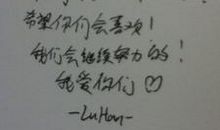 希望你们会喜欢！
我们会继续努力的！
我爱你们♡
-LuHan-